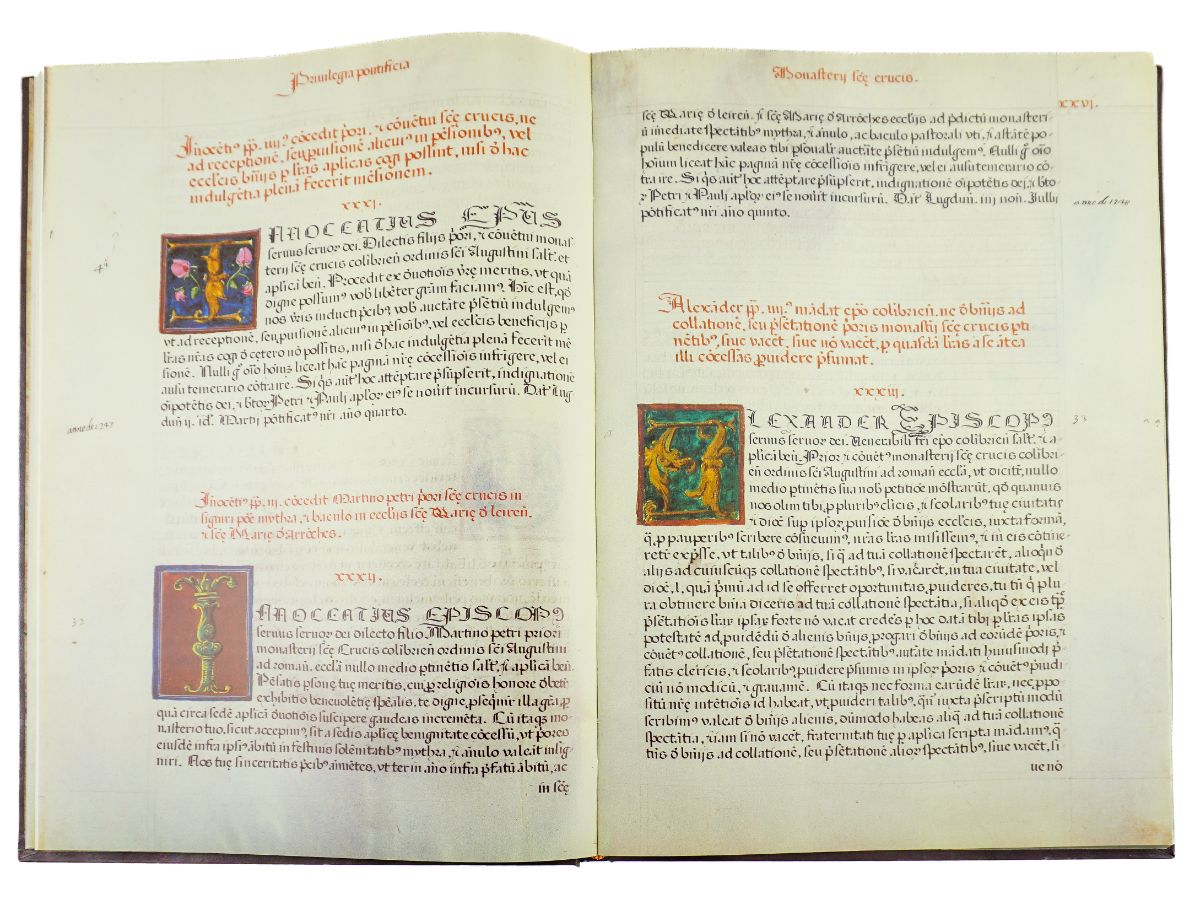 Privilegia pontificia
Inocēti⁹ pp̄. iiij.⁹ cōcedit p̄ori, ⁊ cōuētui sc̄ę crucis, ne
ad receptionē, seu puisionē alicui⁹ in pēsionib⁹, vel
ecclcijs bn̄ijs p lr̄as aplicas cogi possint, nisi d̄ hac
indulgētia plenā fecerit mēsionem.
xxxj.
INNOCENTIUS EPŪS
seruus seruor dei. Dilectis filijs p̄ori, ⁊ cōuētui monas-
terij sc̄ę crucis colibrien̄ ordinis sc̄i Augustini salt̄. et
aplicā ben̄. Procedit ex d̄uotiōis vr̄ę meritis, vt quā
digne possum⁹ vob̄ libēter grām faciam⁹. Hinc est, qd̄
nos vr̄is inducti p̄cib⁹, vob̄ auctāte p̄sētiū indulgem⁹
vt ad receptionē, seu puisionē alicui⁹ in pēsionib⁹, vel ecclcis beneficijs p
lr̄as nr̄as cogi d̄ cętero nō possitis, nisi d̄ hac indulgētia plenā fecerit mē
sionē. Nulli g̊ oīo hoīus liceat hāc paginā nr̄ę cōcessiōis infrigere, vel ei
ausu temerario cōtraire. Si q̄s aut̄ hoc attēptare p̄sūpserit, indignationē
oīpotētis dei, ⁊ btor Petri ⁊ Pauli aplor ei⁹ se nouit incursurū. Dat̄ Lug-
dun̄ ij. id⁹. Martij pōtificat⁹ nr̄i año quarto.
anno de 1247
Inocēti⁹ pp̄. iij. cōcedit Martino petri p̄ori sc̄ę crucis in
signiri pōe mythra, ⁊ baculo in ecclijs sc̄ę Marię d̄ leiren̄.
⁊ sc̄ę Marię d̄ Arrōches.
xxxij.
32
INNOCENTIUS EPISCOP⁹
seruus seruor dei dilecto filio. Martino petri priori
monasterij sc̄ę Crucis colibrien̄ ordinis sc̄i Augustini
ad roman̄. ecclā nullo medio ptinētis salt̄. ⁊ aplicā ben̄.
Pēsatis psonę tuę meritis, cui p religiōis honore d̄bēti
exhibitis beneuolētię spealis, te digne, pseqūmr illa grā, p
quā circa sedē aplicā d̄uotiōis suscipere gaudeas incremēta. Cū itaqs mo-
nasterio tuo, sicut accepim⁹, sit a sedis aplicę benignitate cōcessū, vt p̄ores
eiusdē infra ipsi⁹ ābitū in festiuis solēnitatib⁹ mythra, ⁊ ānulo valeāt insig-
niri. Nos tuę sinceritatis p̄cib⁹ ānuētes, vt ter in año infra p̄fatū ābitū, ac
in sc̄ę
Monasterij sc̄ę crucis.
xxvj.
sc̄ę Marię d̄ leiren̄. ⁊ sc̄ę Marię d̄ Arrōches ecclijs ad p̄dictū monasteri-
ū īmediate spectātib⁹ mythra, ⁊ ānulo, ac baculo pastorali vti, ⁊ astātē po-
pulū benedicere valeas tibi psonalr̄ auctāte p̄sētiū indulgem⁹. Nulli g̊ oīo
hoīum liceat hāc paginā nr̄ę cōcessiōis infrigere, vel ei ausu temerario cō-
traire. Si q̄s aut̄ hoc attēptare p̄sūpserit, indignationē oīpotētis dei, ⁊ btor
Petri ⁊ Pauli aplor ei⁹ se nouit incursurū. Dat̄ Lugdun̄. iij non̄. Iulij
pōtificat⁹ nr̄i año quinto.
Alexāder pp̄. iiij.⁹ mādat epō colibrien̄. ne d̄ bn̄ijs ad
collationē, seu p̄sētationē p̄oris monastij sc̄ę crucis pti
nētib⁹, siue vacēt, siue nō vacēt, p quasdā lr̄as a se ātea
illi cōcessas, puidere p̄sumat.
xxxiij.
33
ALEXANDER EPISCOP⁹
seruus seruor dei. Uenerabili fr̄i epō colibrien̄ salt̄. ⁊ a-
plicā ben̄. Prior, ⁊ cōuēt⁹ monasterij sc̄ę crucis colibri-
en̄ ordinis sc̄i Augustini ad romān̄ ecclā, vt dicit̄, nullo
medio ptinētis sua nob̄ petitiōe mōstrarūt, qd̄ quanuis
nos olim tibi, p pluribus clicis, ⁊ scolarib⁹ tuę ciuitatis
⁊ dioc̄ sup ipsor puisiōe d̄ bn̄ijs ecclcis, iuxta formā,
q̄ p paupib⁹ scribere cōsueuim⁹, nr̄as lr̄as misissem⁹, ⁊ in eis cōtine-
retr̄ exp̄sse, vt talib⁹ d̄ bn̄ijs, si q̄ ad tuā collationē spectarēt, alioqū d̄
alijs ad cuiuscuq̄s collationē spectātib⁹, si vacarēt, in tua ciuitate, vel
dioc̄, q̄ quā p̄mū ad id se offerret oportunitas, puideres, tu tn̄ q̄ plu
ra obtinere bn̄ia diceris ad tuā collationē spectātia, si aliqd̄ ex eis tp̄r̄
presentatiōis lr̄ar ipsar forte nō vacat credēs p hoc datā tibi p lr̄as ipsas
potestatē ad puidēdū d̄ alienis bn̄ijs, progari d̄ bn̄ijs ad eorūdē p̄oris, ⁊
cōuēt⁹ collationē, seu p̄sētationē spectātib⁹, autāte mādati huiusmodi p̄-
fatis clericis, ⁊ scolarib⁹ puidere p̄sumis in ipsor p̄oris ⁊ cōuēt⁹ p̄iudi-
ciū nō modicū, ⁊ grauamē. Cū itaqs nec forma earūdē lr̄ar, nec p̄po-
sitū nr̄ę intētiōis id habeat, vt puideri talib⁹, qn̄ iuxta p̄scriptū modū
scribim⁹ valeāt d̄ bn̄ijs alienis, dūmodo habeas aliq̄ ad tuā collationē
spectātia, etiam si nō vacēt, fraternitati tuę p aplica scripta mādam⁹, q-
tin⁹ d̄ bn̄ijs ad collationē, seu p̄sētationē alior spectātib⁹, siue vacēt, si
ue nō